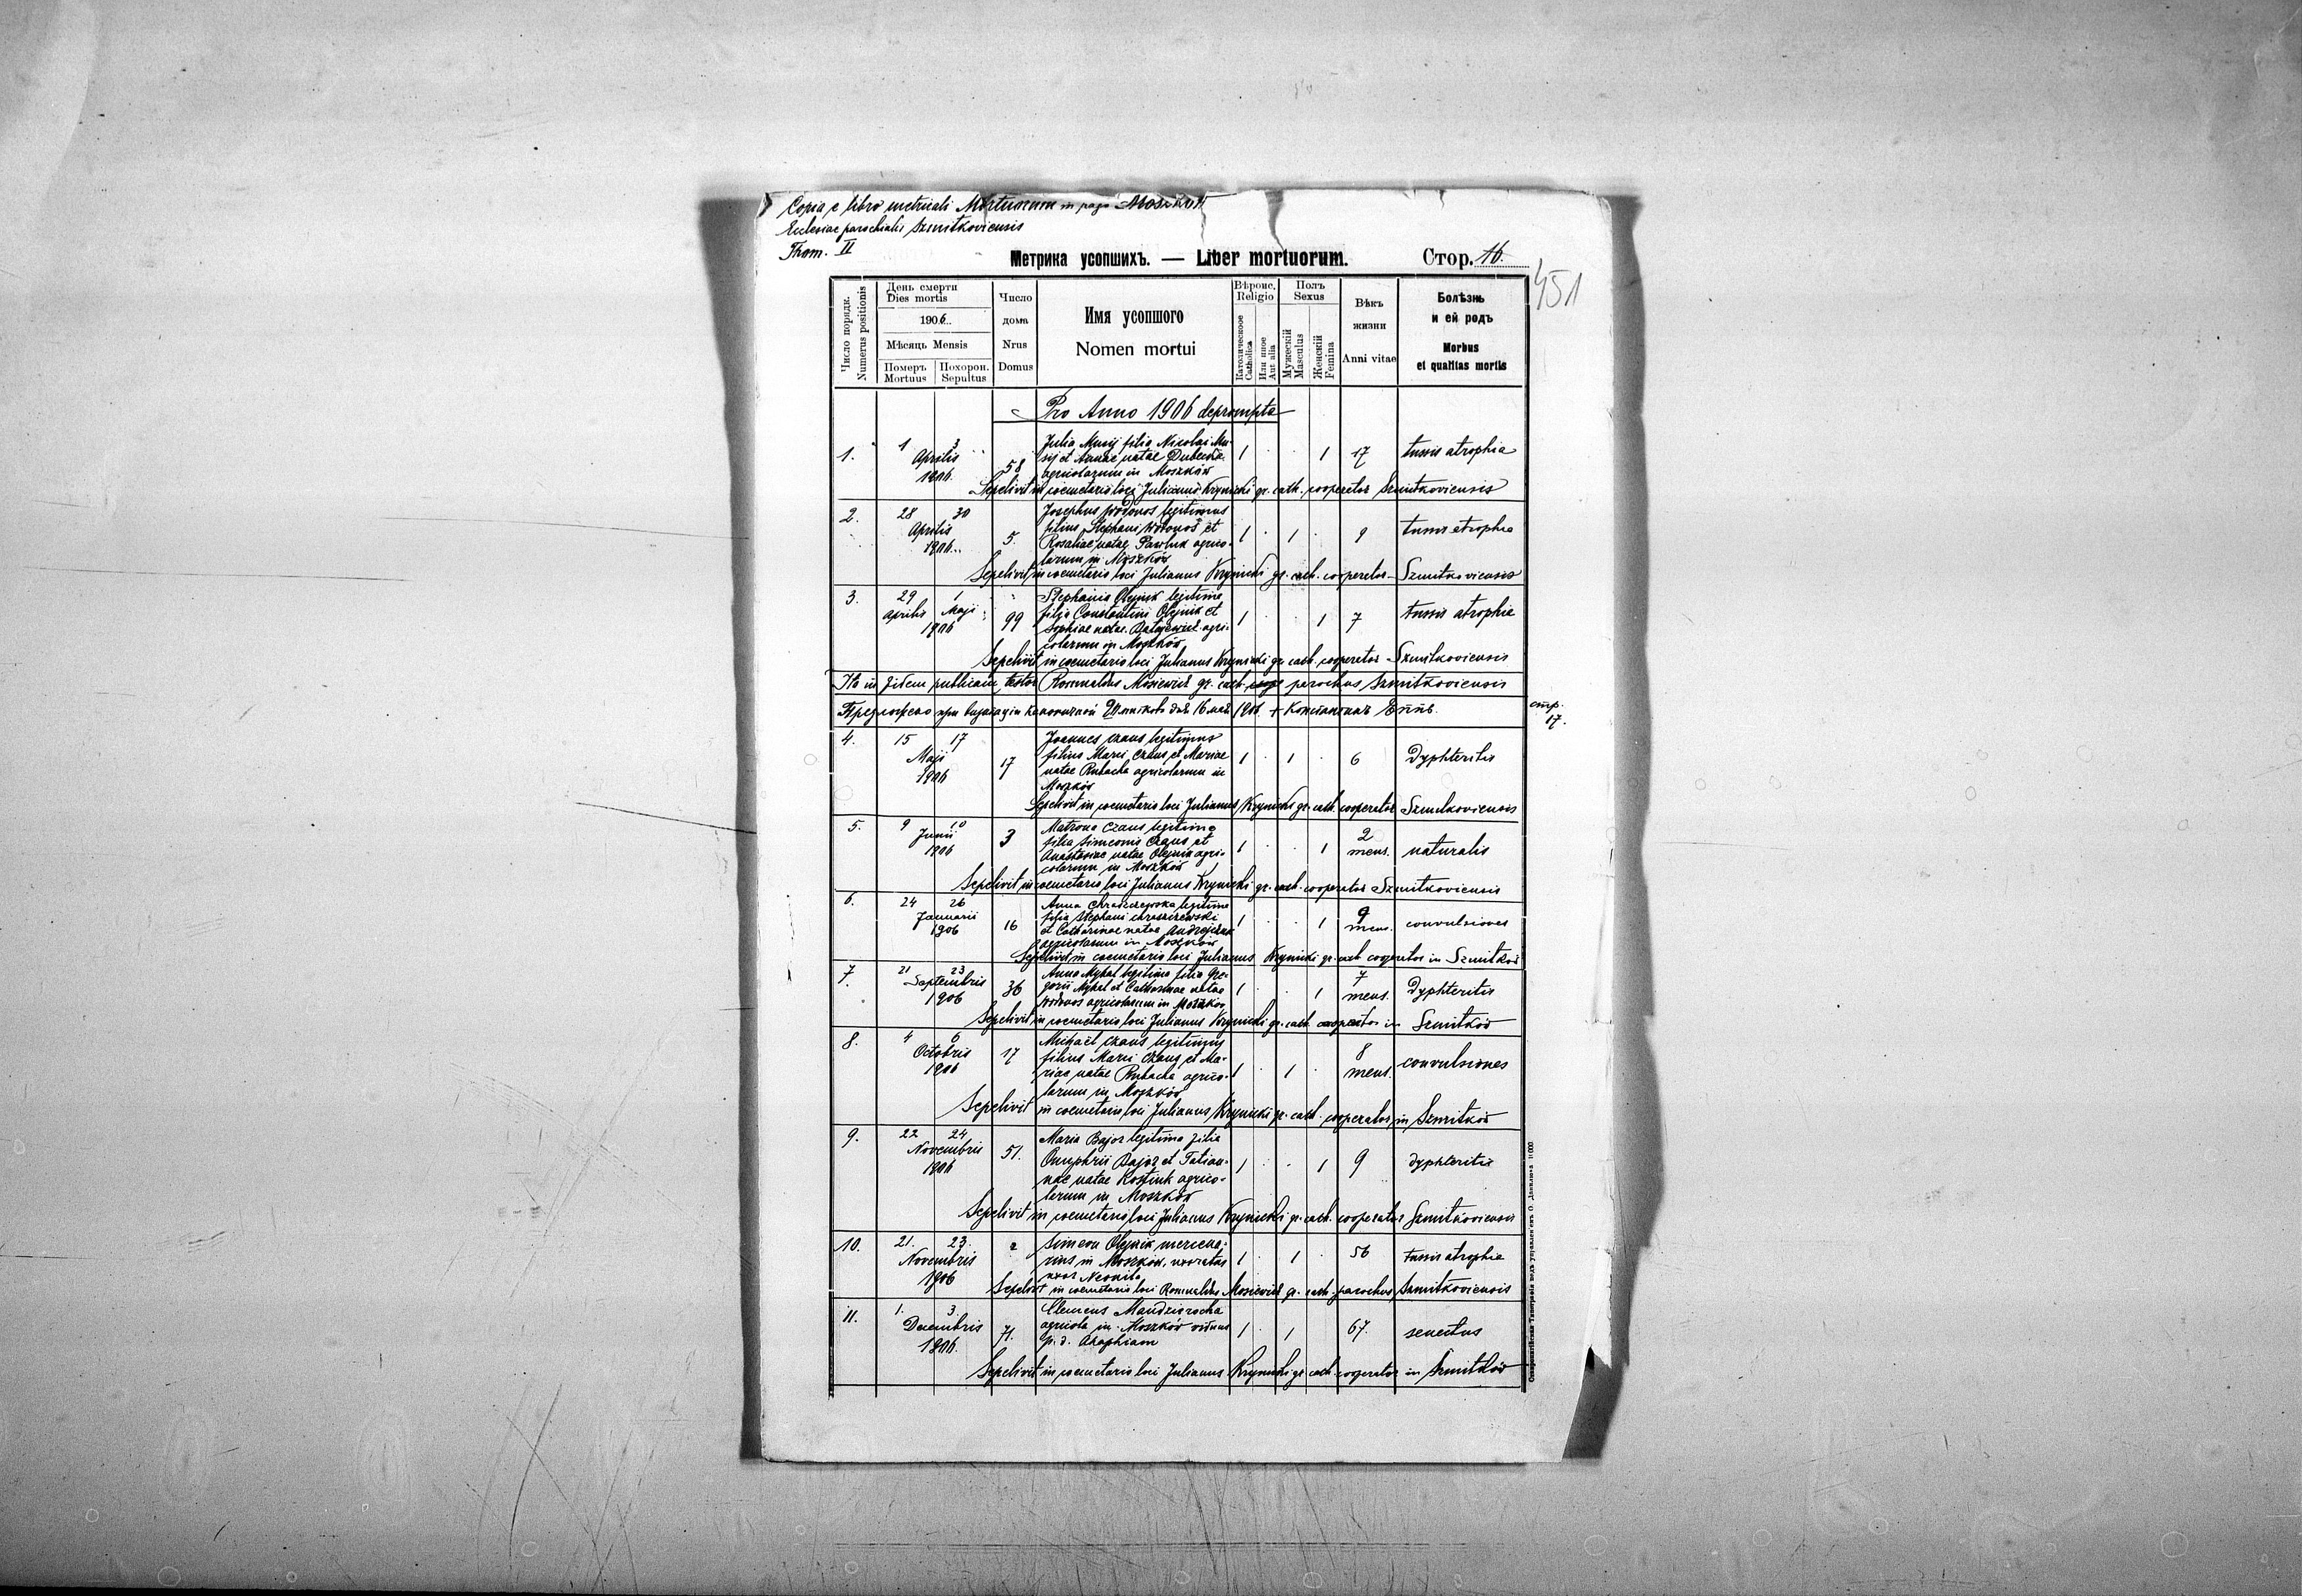 Copia e libro metricali Mortuorum in pago Moszków
Ecclesiae parochialis Szmitkoviensis
Thom. II
Метрика усопшихъ. — Liber mortuorum. Стор. 16.
451
Число порядк. Numerus positionis
День смерти
Dies mortis
1906.
Мѣсяць Mensis
Померъ Mortuus
Похорон. Sepultus
Число дома
Nrus Domus
Имя усопшого
Nomen mortui
Вѣроис. Religio
Католическое Catholica
Или иное Aut alia
Полъ Sexus
Мужескій Masculus
Женскій Femina
Вѣкъ жизни
Anni vitae
Болѣзнь и ей родъ
Morbus et qualitas mortis
Pro Anno 1906 deprompta
1. 1 3 Aprilis 1906. 58
Julia Musij filia Nicolai Mu-
sij et Annae natae
agricolarum in Moszków
1 1 17 tussis atrophia
Sepelivit in coemetario loci Julianus Krynicki gr. cath. cooperator Szmitkoviensis
2. 28 30 Aprilis 1906. 5.
Josephus Wodonos legitimus
filius Stephani Wodonos et
Rosaliae natae Pawluk agrico-
larum in Moszków
1 1 9 tussis atrophia
Sepelivit in coemetario loci Julianus Krynicki gr. cath. cooperator Szmitkoviensis
3. 29 Aprilis 1 Maji 1906 99
Stephania Olejnik legitima
filia Constantini Olejnik et
Sophiae natae agri-
colarum in Moszków
1 1 7 tussis atrophia
Sepelivit in coemetario loci Julianus Krynicki gr. cath. cooperator Szmitkoviensis
Ita in fidem publicam testor Romualdus Mosiewicz gr. cath. parochus Szmitkoviensis
Предложено при визитаціи каноничной дня 16 мая 1906 + Константинъ Епп.
стр. 17.
4. 15 17 Maji 1906 17
Joannes Czaus legitimus
filius Marci Czaus et Mariae
natae Rubacha agricolarum in
Moszków
1 1 6 Dyphteritis
Sepelivit in coemetario loci Julianus Krynicki gr. cath. cooperator Szmitkoviensis
5. 9 10 Junii 1906 3
Matrona Czaus legitima
filia Simeonis Czaus et
Anastasiae natae Olejnik agri-
colarum in Moszków
1 1 2 mens. naturalis
Sepelivit in coemetario loci Julianus Krynicki gr. cath. cooperator Szmitkoviensis
6. 24 26 Januarii 1906 16
Anna Chraszczewska legitima
filia Stephani Chraszczewski
et Catharinae natae
agricolarum in Moszków
1 1 9 mens. convulsiones
Sepelivit in coemetario loci Julianus Krynicki gr. cath cooperator in Szmitków
7. 21 23 Septembris 1906 36
Anna Mykal legitima filia Gre-
gorii Mykal et Catharinae natae
Wodonos agricolarum in Moszków
1 1 7 mens. Dyphteritis
Sepelivit in coemetario loci Julianus Krynicki gr. cath. cooperator in Szmitków
8. 4 6 Octobris 1906 17
Michaël Czaus legitimus
filius Marci Czaus et Ma-
riae natae Rubacha agrico-
larum in Moszków
1 1 8 mens. convulsiones
Sepelivit in coemetario loci Julianus Krynicki gr. cath. cooperator in Szmitków
9. 22 24 Novembris 1906 51.
Maria Bajor legitima filia
Onuphrii Bajor et Tatian-
nae natae Kostiuk agrico-
larum in Moszków
1 1 9 dyphteritis
Sepelivit in coemetario loci Julianus Krynicki gr. cath. cooperator Szmitkoviensis
10. 21. 23. Novembris 1906 2
Simeon Olejnik mercena-
rius in Moszków, uxoratus
uxor Neonila
1 1 56 tussis atrophia
Sepelivit in coemetario loci Romualdus Mosiewicz gr. cath. parochus Szmitkoviensis
11. 1. 3. Decembris 1906. 71.
Clemens Mandziorocha
agricola in Moszków viduus
p. d. Agaphiam
1 1 67. senectus
Sepelivit in coemetario loci Julianus Krynicki gr. cath. cooperator in Szmitków